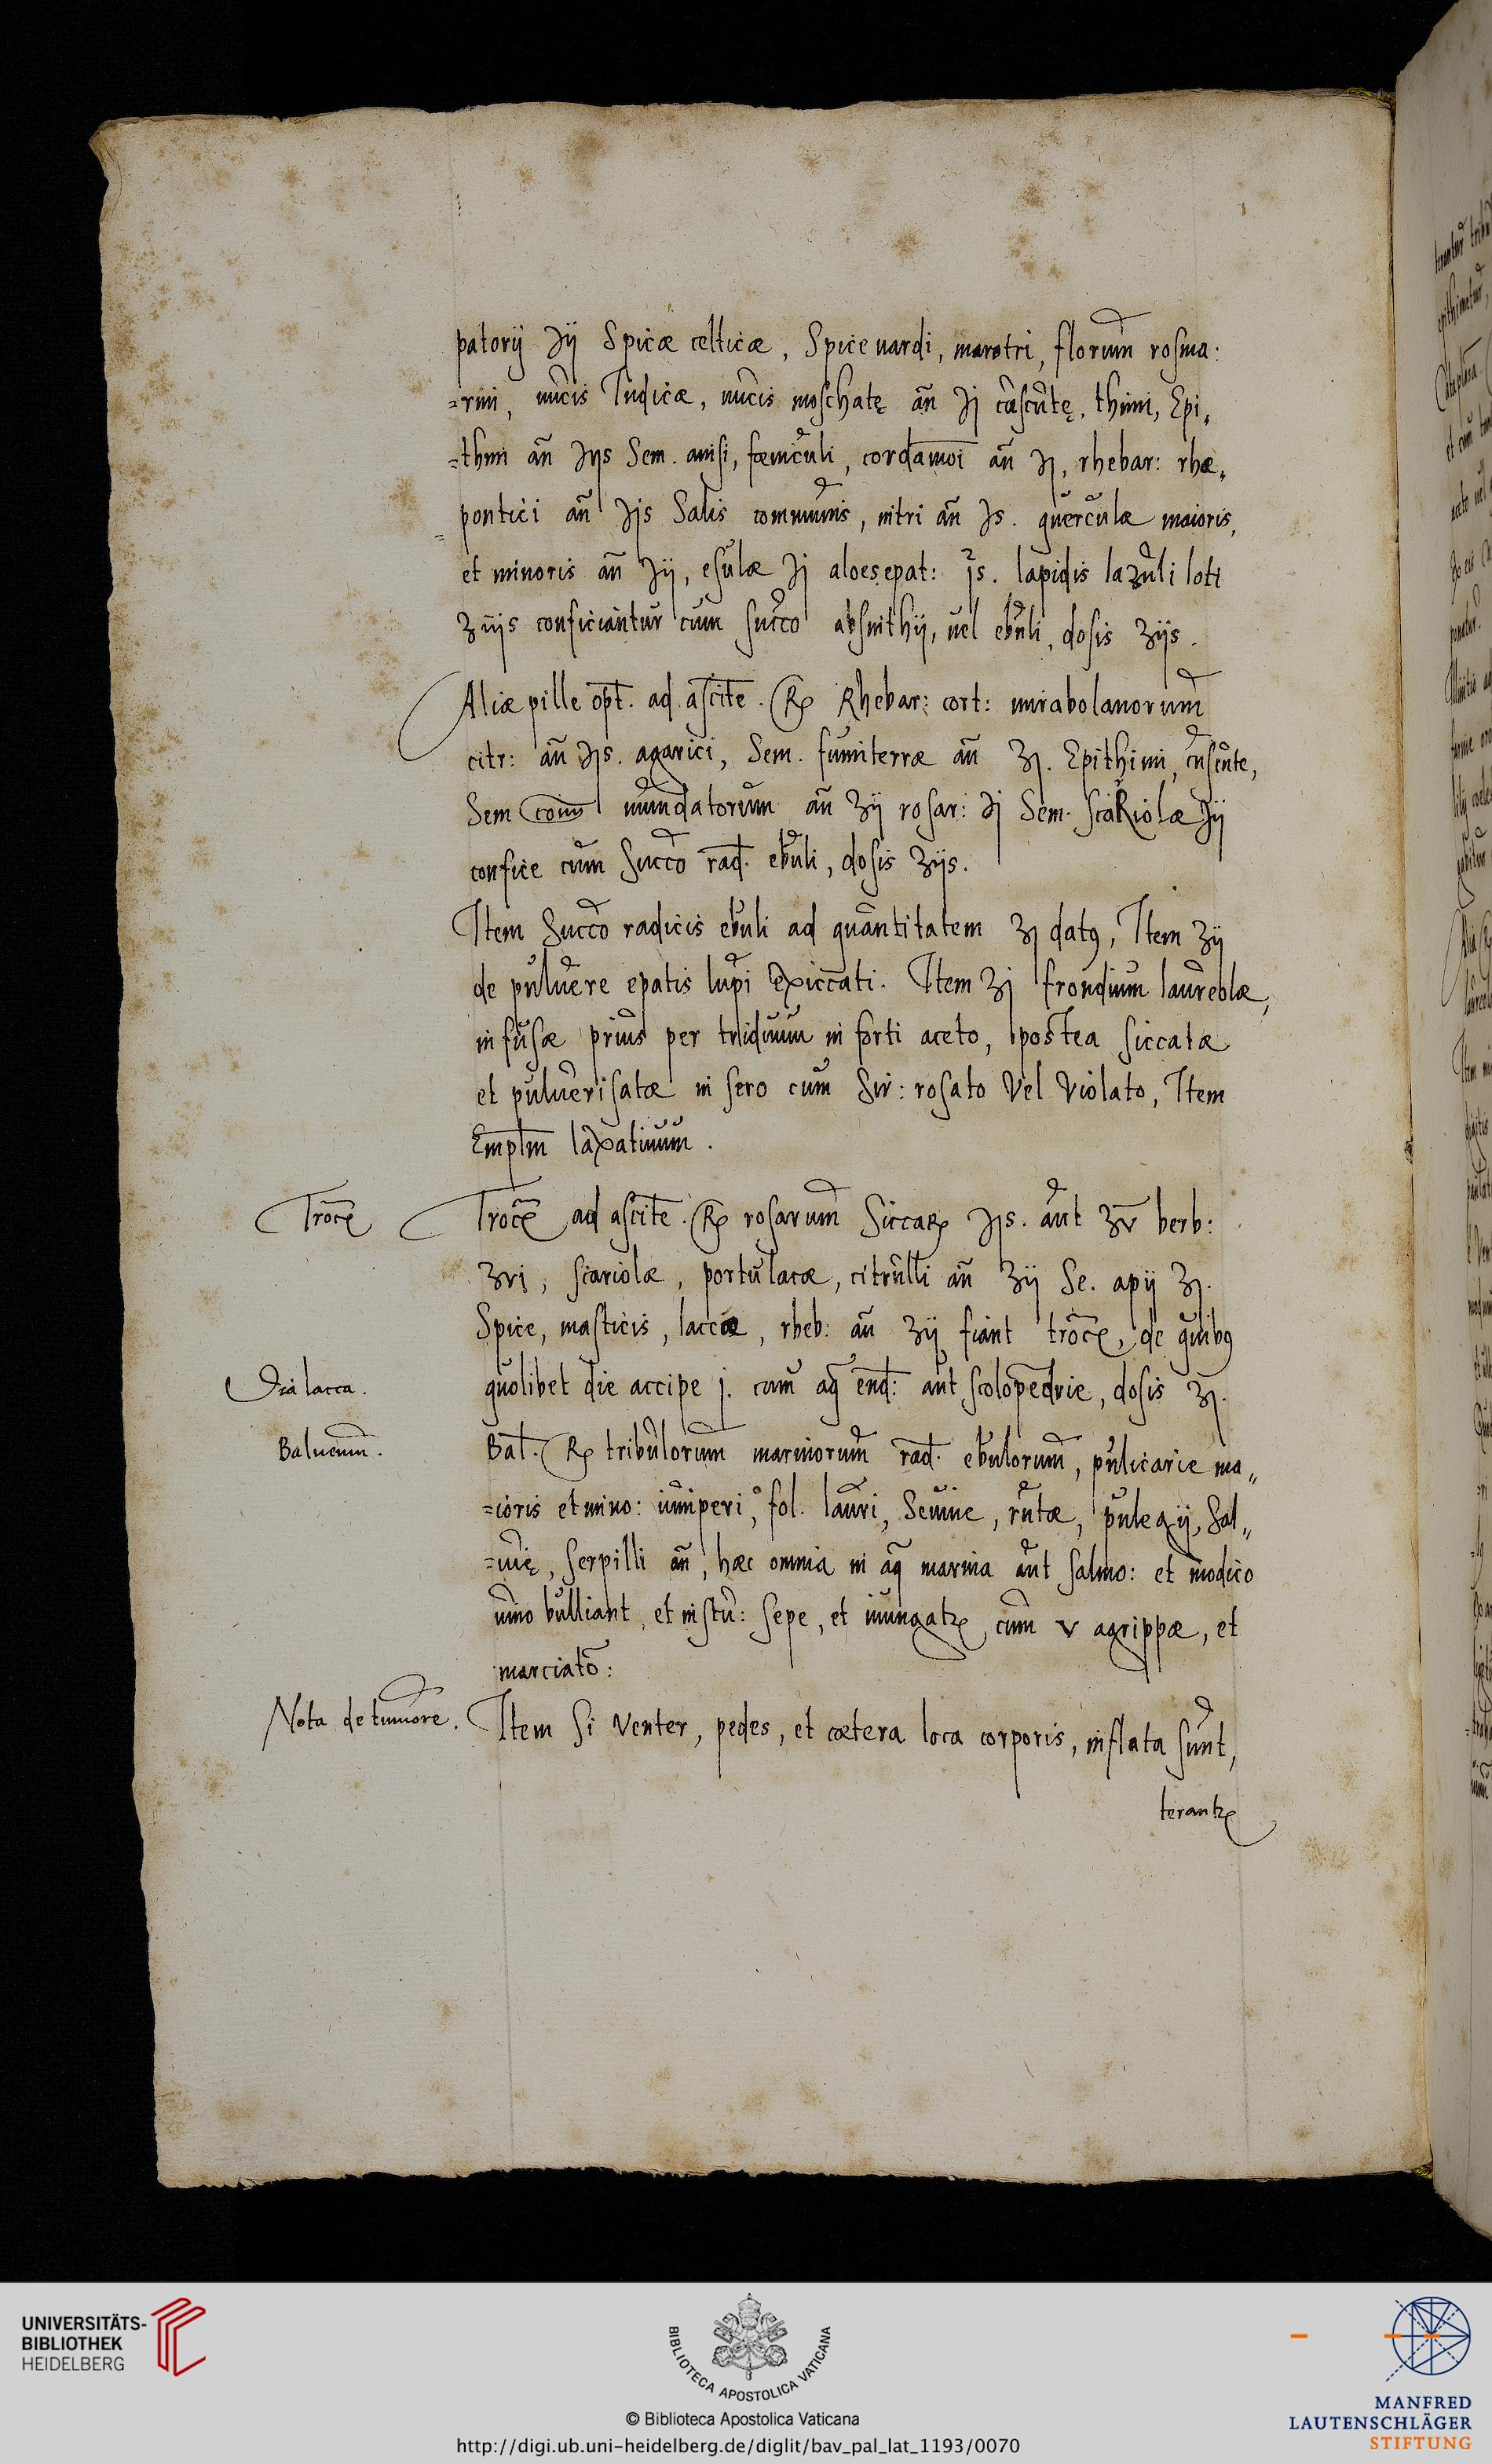 patorij ℈ij Spicæ celticæ, Spice nardi, maratri, florum rosma:
=rini, nucis Indicæ, nucis moschatę añ ℈j cascutę, thimi, Epi„
=thimi añ ℈ijs Sem. anisi, fœniculi, cordamoi añ ℈j, rhebar: rhæ„
=pontici añ ℈js Salis communis, nitri añ ℈s. querculæ maioris,
et minoris añ ℈ij, esulæ ℈j aloes epat: ℥s. lapidis lazuli loti
ʒiijs conficiantur cum succo absinthij, uel ebuli, dosis ʒijs.
Aliæ pille opt. ad ascite. ℞ Rhebar: cort: mirabolanorum
citr: añ ℈js. agarici, Sem. fumiterræ añ ʒj. Epithimi, cuscute,
Sem com̄ mundatorum añ ʒij rosar: ℈j Sem. scaRiolæ ℈ij
confice cum succo rad. ebuli, dosis ʒijs.
Item Succo radicis ebuli ad quantitatem ʒj datꝰ, Item ʒij
de puluere epatis lupi exiccati. Item ʒj frondium laureolæ,
infusæ prius per triduum in forti aceto, postea siccatæ
et puluerisatæ in sero cum Sir: rosato Vel Violato, Item
Emplm laxatiuum.
Trocꝭ
Trocꝭ ad ascite. ℞ rosarum Siccaꝝ ℈js. aut ʒv berb:
ʒvj, scariolæ, portulacæ, citrulli añ ʒij Se. apij ʒj.
Spice, masticis, laccæ, rheb: añ ʒij fiant trocꝭ, de quibꝰ
Dia lacca.
quolibet die accipe j. cum aq̃ end: aut scolopedrie, dosis ʒj.
Balneum.
Bal. ℞ tribulorum marinorum rad. ebulorum, pulicarie ma„
=ioris et mino: iuniperi, fol. lauri, Seuine, rutæ, pulegij, Sal„
=uię, serpilli añ, hæc omnia in aq̃ marina aut salmo: et modico
uino bulliant, et in stu: sepe, et inungatꝝ cum v agrippæ, et
marciatõ:
Nota de tumore.
Item Si Venter, pedes, et cætera loca corporis, inflata sunt,
terantꝝ
UNIVERSITÄTS-
BIBLIOTHEK
HEIDELBERG
BIBLIOTECA APOSTOLICA VATICANA
© Biblioteca Apostolica Vaticana
http://digi.ub.uni-heidelberg.de/diglit/bav_pal_lat_1193/0070
MANFRED
LAUTENSCHLÄGER
STIFTUNG